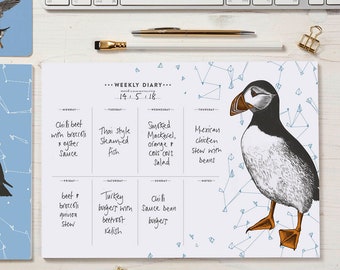 WEEKLY DIARY
14.5.18
MONDAY TUESDAY WEDNESDAY THURSDAY
Chilli beef
with broccoli
& oyster
sauce
Thai style
Steamed
fish
Smoked
Mackerel,
orange &
cous cous
Salad
Mexican
chicken
Stew with
beans
beef &
broccoli
quinoa
stew
Turkey
burgers with
beetroot
relish
Chilli
Sauce bean
burgers